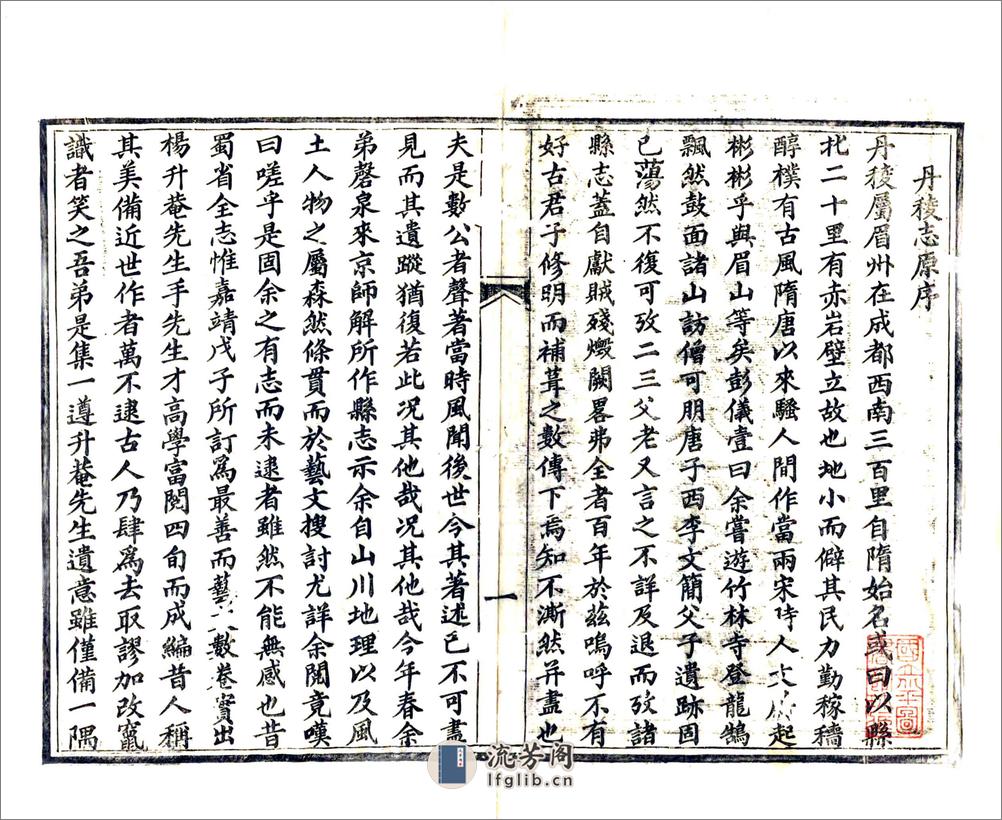 丹稜志原序
丹稜屬眉州在成都西南三百里自隋始名或曰以縣
北二十里有赤岩壁立故也地小而僻其民力勤稼穡
醇樸有古風隋唐以來騷人間作當兩宋時人文蔚起
彬彬乎與眉山等矣彭儀壹曰余嘗遊竹林寺登龍鵠
飄然鼓面諸山訪僧可朋唐子西李文簡父子遺跡固
已蕩然不復可攷二三父老又言之不詳及退而攷諸
縣志蓋自獻賊殘燬闕畧弗全者百年於茲嗚呼不有
好古君子修明而補葺之數傳下焉知不澌然并盡也
夫是數公者聲著當時風聞後世今其著述已不可盡
見而其遺蹤猶復若此况其他哉况其他哉今年春余
弟磬泉來京師解所作縣志示余自山川地理以及風
土人物之屬森然條貫而於藝文搜討尤詳余閱竟嘆
曰嗟乎是固余之有志而未逮者雖然不能無感也昔
蜀省全志惟嘉靖戊子所訂爲最善而藝文數卷實出
楊升菴先生手先生才高學富閱四旬而成編昔人稱
其美備近世作者萬不逮古人乃肆爲去取謬加改竄
識者笑之吾弟是集一遵升菴先生遺意雖僅備一隅
一
流芳阁
lfglib.cn